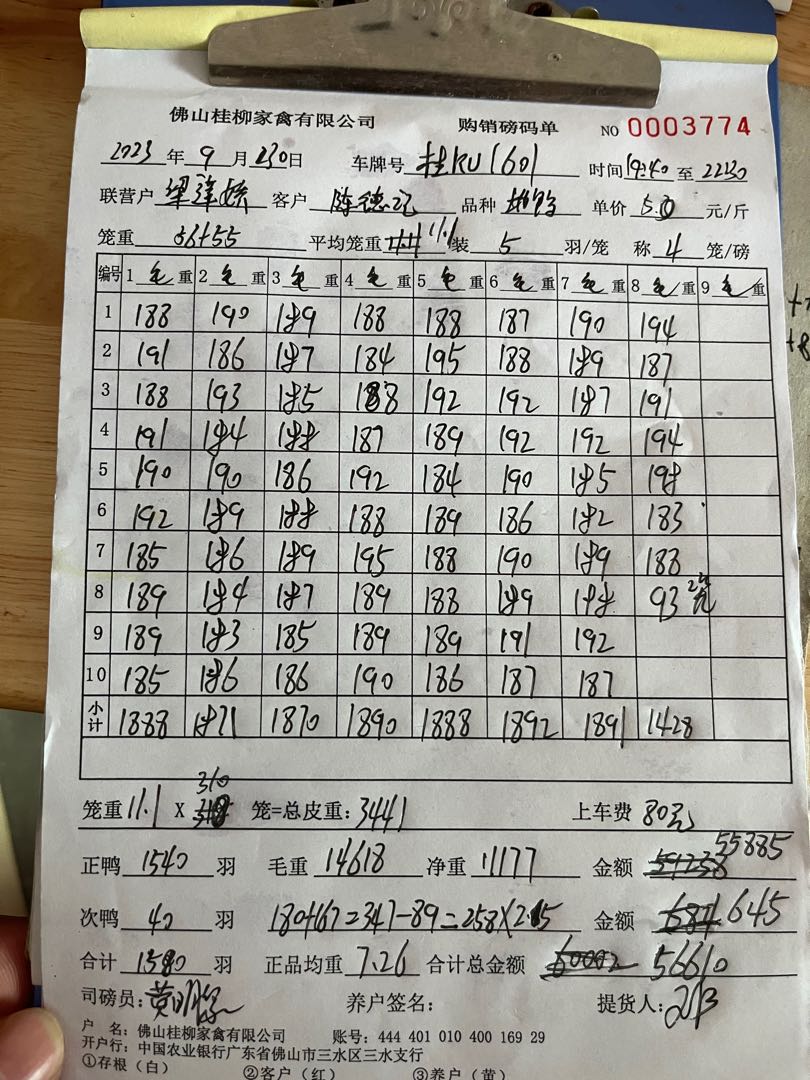 佛山桂柳家禽有限公司 购销磅码单 NO 0003774
2023 年 9 月 30 日 车牌号 桂KU1601 时间 19:40 至 22:30
联营户 客户 陈德记 品种 单价 5.0 元/斤
笼重 56÷55 平均笼重 11.1 装 5 羽/笼 称 4 笼/磅
编号 1 毛 重 2 毛 重 3 毛 重 4 毛 重 5 毛 重 6 毛 重 7 毛 重 8 毛 重 9 毛 重
1 188 190 189 188 188 187 190 194
2 191 186 187 184 195 188 189 187
3 188 193 185 188 192 192 187 191
4 191 184 188 187 189 192 192 194
5 190 190 186 192 184 190 185 198
6 192 189 188 188 189 186 182 183
7 185 186 189 195 188 190 189 188
8 189 184 187 189 188 189 188 93 2笼
9 189 183 185 189 189 191 192
10 185 186 186 190 186 187 187
小计 1888 1871 1870 1890 1888 1892 1891 1428
310
笼重 11.1 X 笼=总皮重: 3441 上车费 80元
55885
正鸭 1540 羽 毛重 14618 净重 11177 金额
次鸭 40 羽 180+167=347-89=258×2.5 金额 645
合计 1580 羽 正品均重 7.26 合计总金额 60002 56610
司磅员: 养户签名: 提货人:
户 名: 佛山桂柳家禽有限公司 账号: 444 401 010 400 169 29
开户行: 中国农业银行广东省佛山市三水区三水支行
①存根(白) ②客户(红) ③养户(黄)